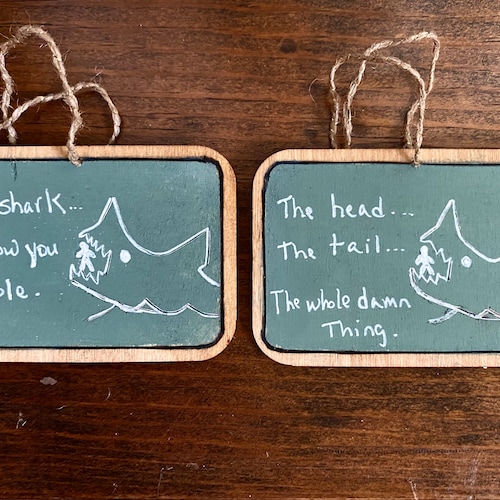 shark...
you
The head...
The tail...
The whole damn
Thing.